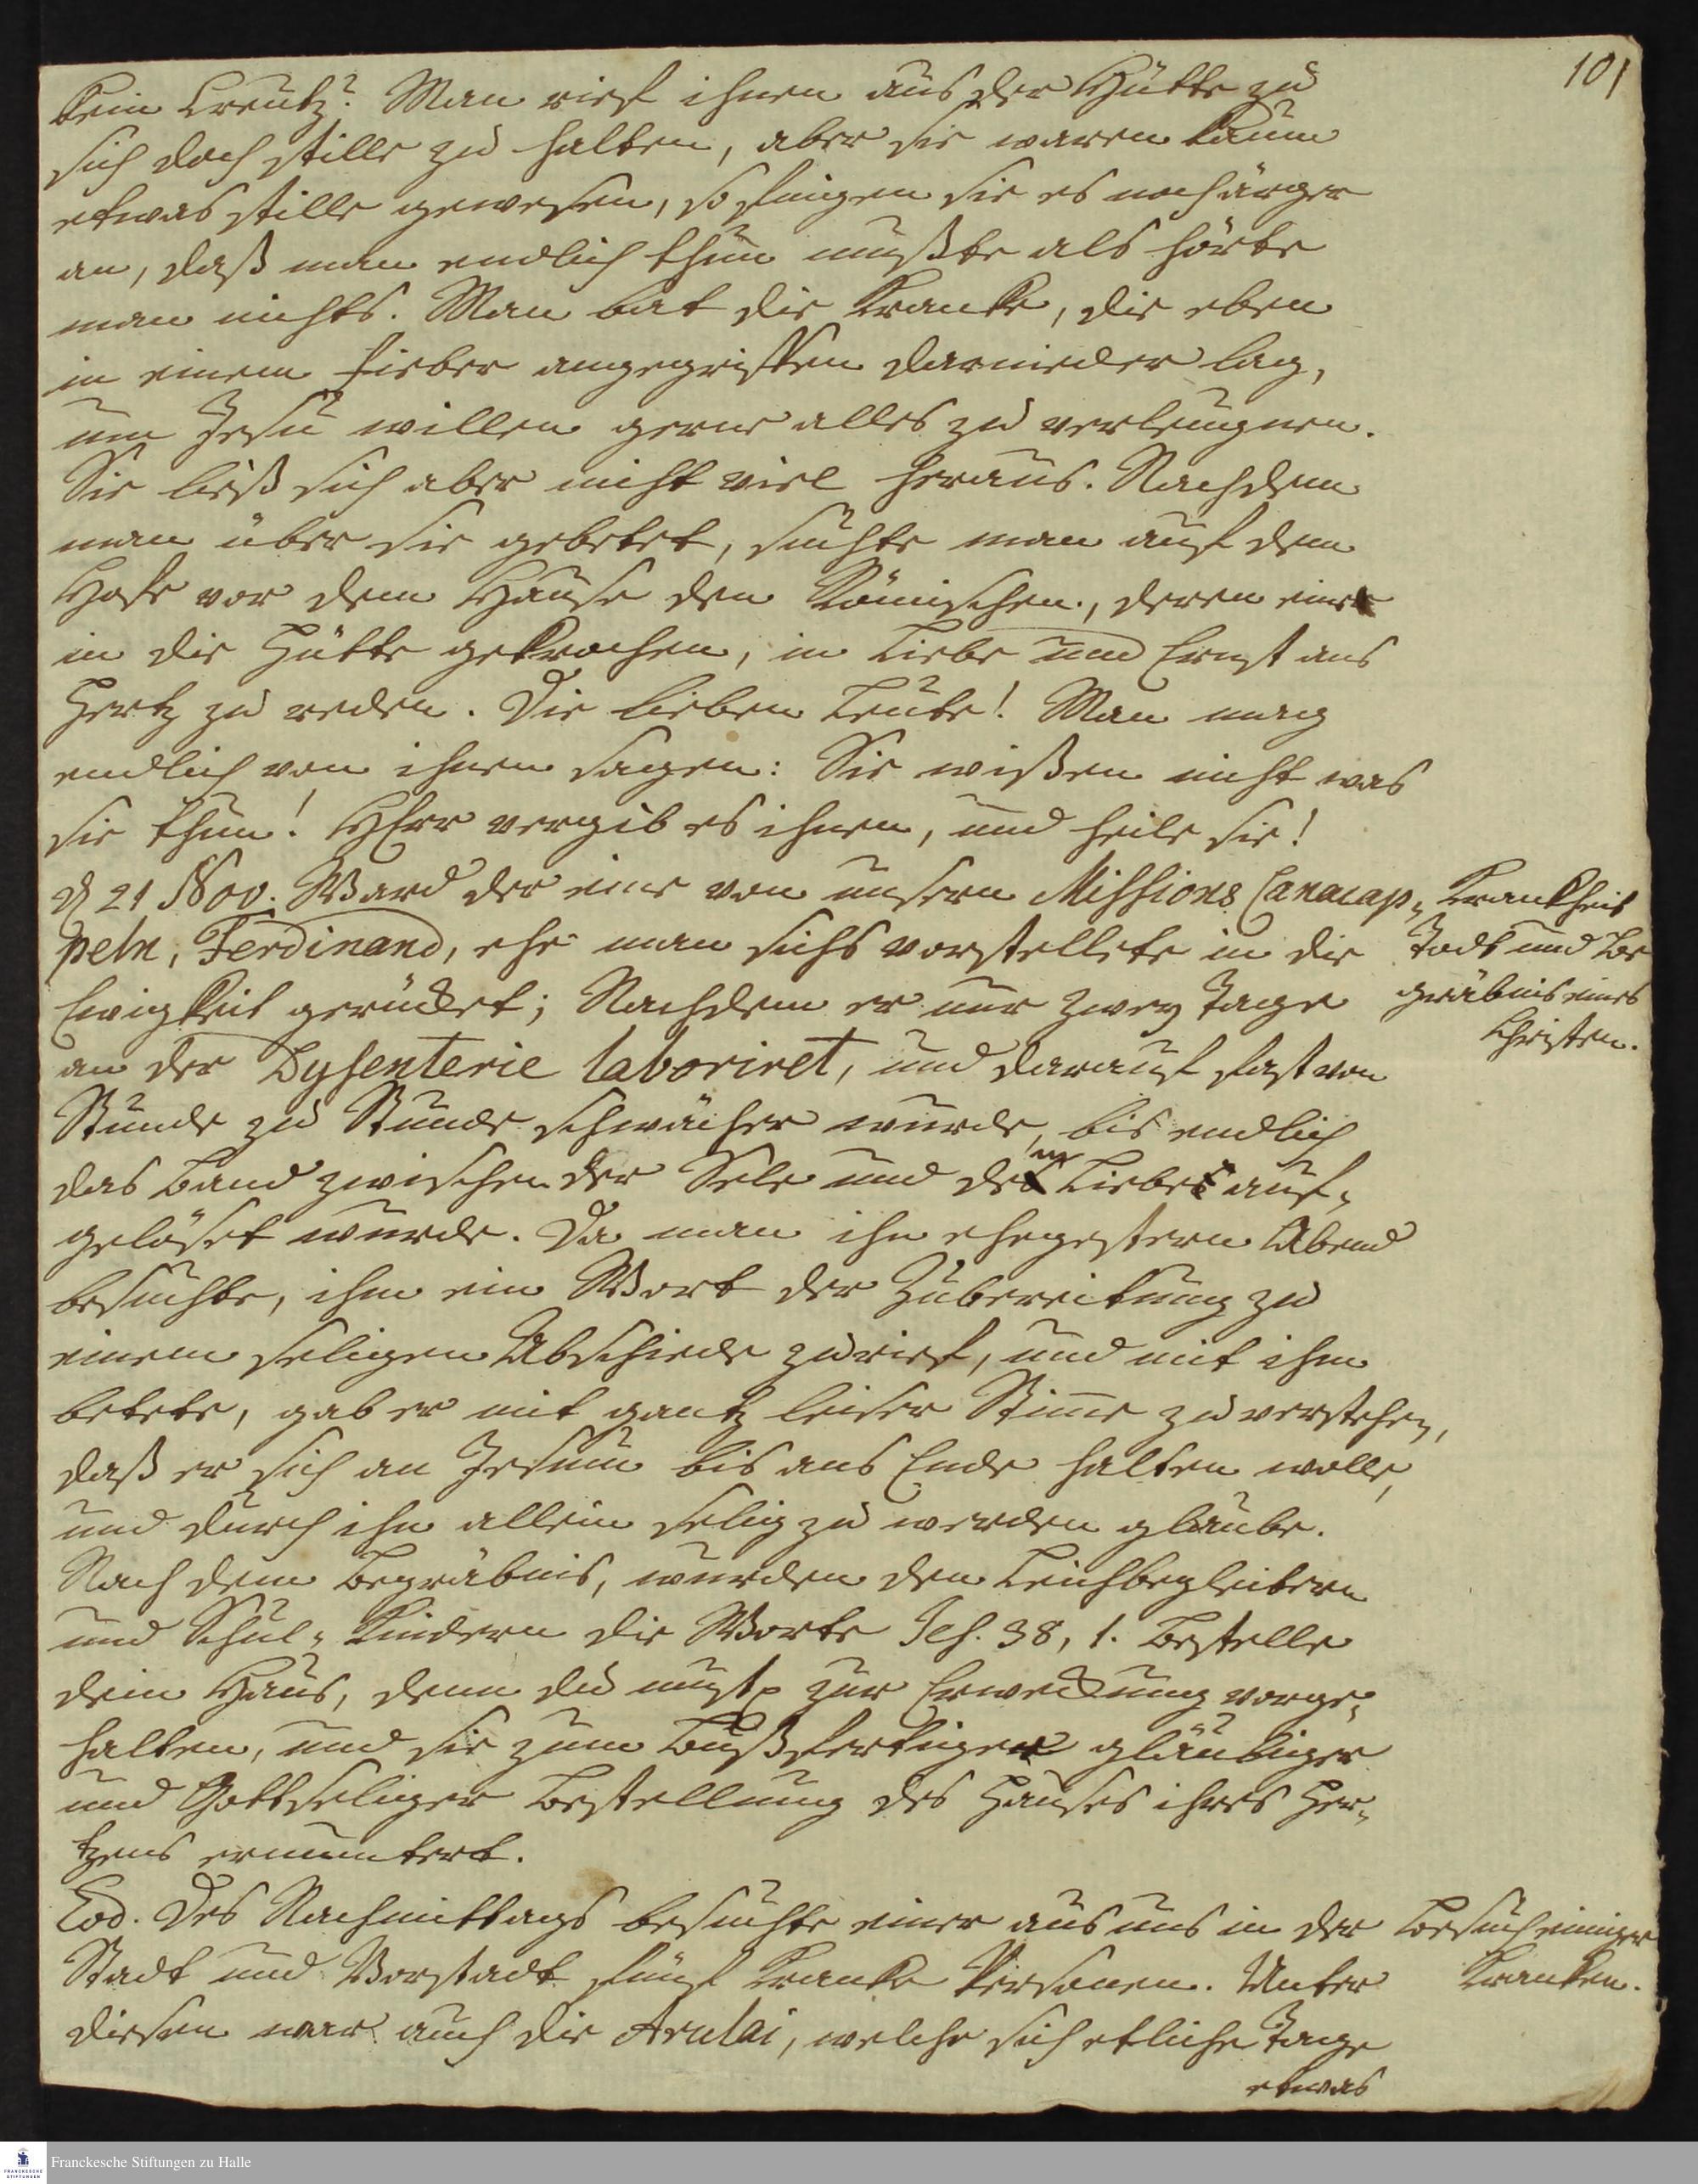 101
kein Creutz? Man rief ihnen aus der Hütte zu
sich doch stille zu halten, aber sie waren kaum
etwas stille gewesen, so fingen sie es noch ärger
an, daß man endlich thun mußte als hörte
man nichts. Man bat die Kranke, die eben
in einem Fieber angegriffen darnieder lag,
um Jesu willen gerne alles zu verleugnen.
Sie ließ sich aber nicht viel heraus. Nachdem
man über sie gebetet, suchte man auf dem
Hofe vor dem Hause den Römischen, deren eine
in die Hütte gekrochen, in Liebe und Ernst ans
Hertz zu reden. Die lieben Leute! Man mag
endlich von ihnen sagen: Sie wißen nicht was
sie thun! HErr vergib es ihnen, und heile sie!
d 21 Nov. Ward der eine von unsern Missions Canacap-
peln, Ferdinand, ehe man sichs vorstellete in die
Ewigkeit gerücket; Nachdem er nur zwey Tage
an der Dysenterie laboriret, und darauf fast von
Stunde zu Stunde schwächer wurde, bis endlich
das Band zwischen der Sele und dem Leibe auf-
gelöset wurde. Da man ihn ehegestern Abend
besuchte, ihm ein Wort der Zubereitung zu
einem seligen Abschiede zurief, und mit ihm
betete, gab er mit gantz leiser Stimme zu verstehen,
daß er sich an Jesum bis ans Ende halten wolle,
und durch ihn allein selig zu werden glaube.
Nach dem Begräbnis, wurden den Leichbegleitern
und Schul-Kindern die Worte Jes. 38, 1. Bestelle
dein Haus, denn du must zur Erweckung vorge-
halten, und sie zum Bußfertiger gläubiger
und Gottseliger Bestellung des Hauses ihres Her-
tzens ermuntert.
Krankheit
Todt und Be
gräbnis eines
Christen.
Eod. Des Nachmittags besuchte einer aus uns in der
Stadt und Vorstadt fünf Kranke Personen. Unter
diesen war auch die Arulai, welche sich etliche Tage
etwas
Besuch einiger
Kranken.
Franckesche Stiftungen zu Halle
FRANCKESCHE
STIFTUNGEN